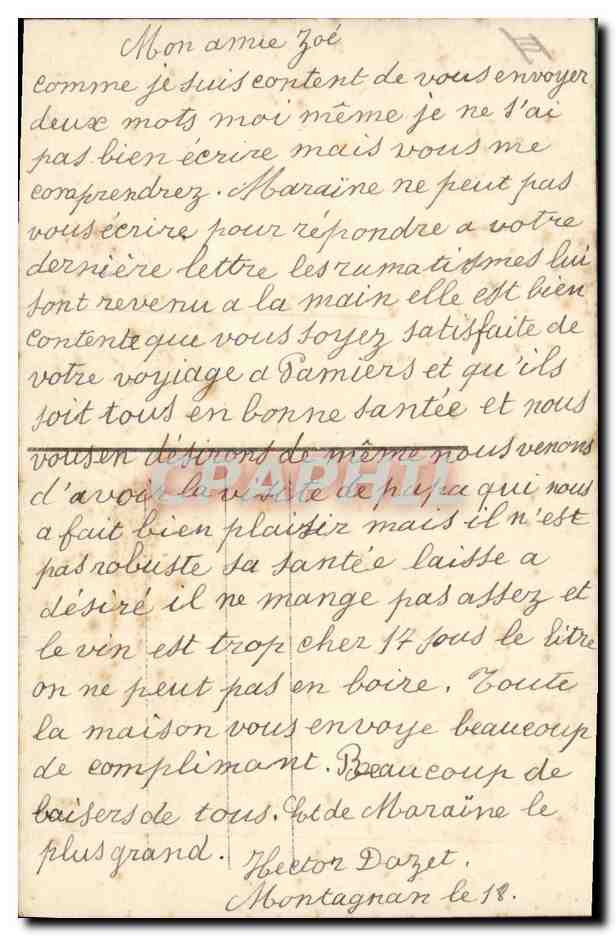 Mon amie Zoé
comme je suis content de vous envoyer
deux mots moi même je ne s'ai
pas bien écrire mais vous me
comprendrez. Maraïne ne peut pas
vous écrire pour répondre a votre
dernière lettre les rumatismes lui
sont revenu a la main elle est bien
contente que vous soyez satisfaite de
votre voyiage a Pamiers et qu'ils
soit tous en bonne santée et nous
vous en désirons de même nous venons
d'avoir la visite de papa qui nous
a fait bien plaisir mais il n'est
pas robuste sa santée laisse a
désiré il ne mange pas assez et
le vin est trop cher 17 sous le litre
on ne peut pas en boire. Toute
la maison vous envoye beaucoup
de complimant. Beaucoup de
baisers de tous. Et de Maraïne le
plus grand.
Hector Dazet.
Montagnan le 18.
CPAPHIL